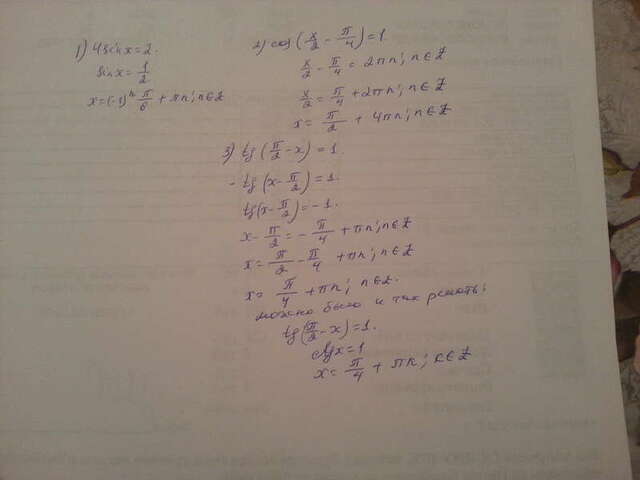 1) 4sinx=2.
sinx=1/2
x=(-1)ⁿ π/6 + πn; n∈Z
2) cos(x/2 - π/4)=1
x/2 - π/4 = 2πn; n∈Z
x/2 = π/4 + 2πn; n∈Z
x = π/2 + 4πn; n∈Z
3) tg(π/2 - x) = 1.
- tg(x - π/2) = 1.
tg(x - π/2) = -1.
x - π/2 = - π/4 + πn; n∈Z
x = π/2 - π/4 + πn; n∈Z
x = π/4 + πn; n∈Z.
можно было и так решать:
tg(π/2 - x) = 1.
ctgx = 1
x = π/4 + πk; k∈Z